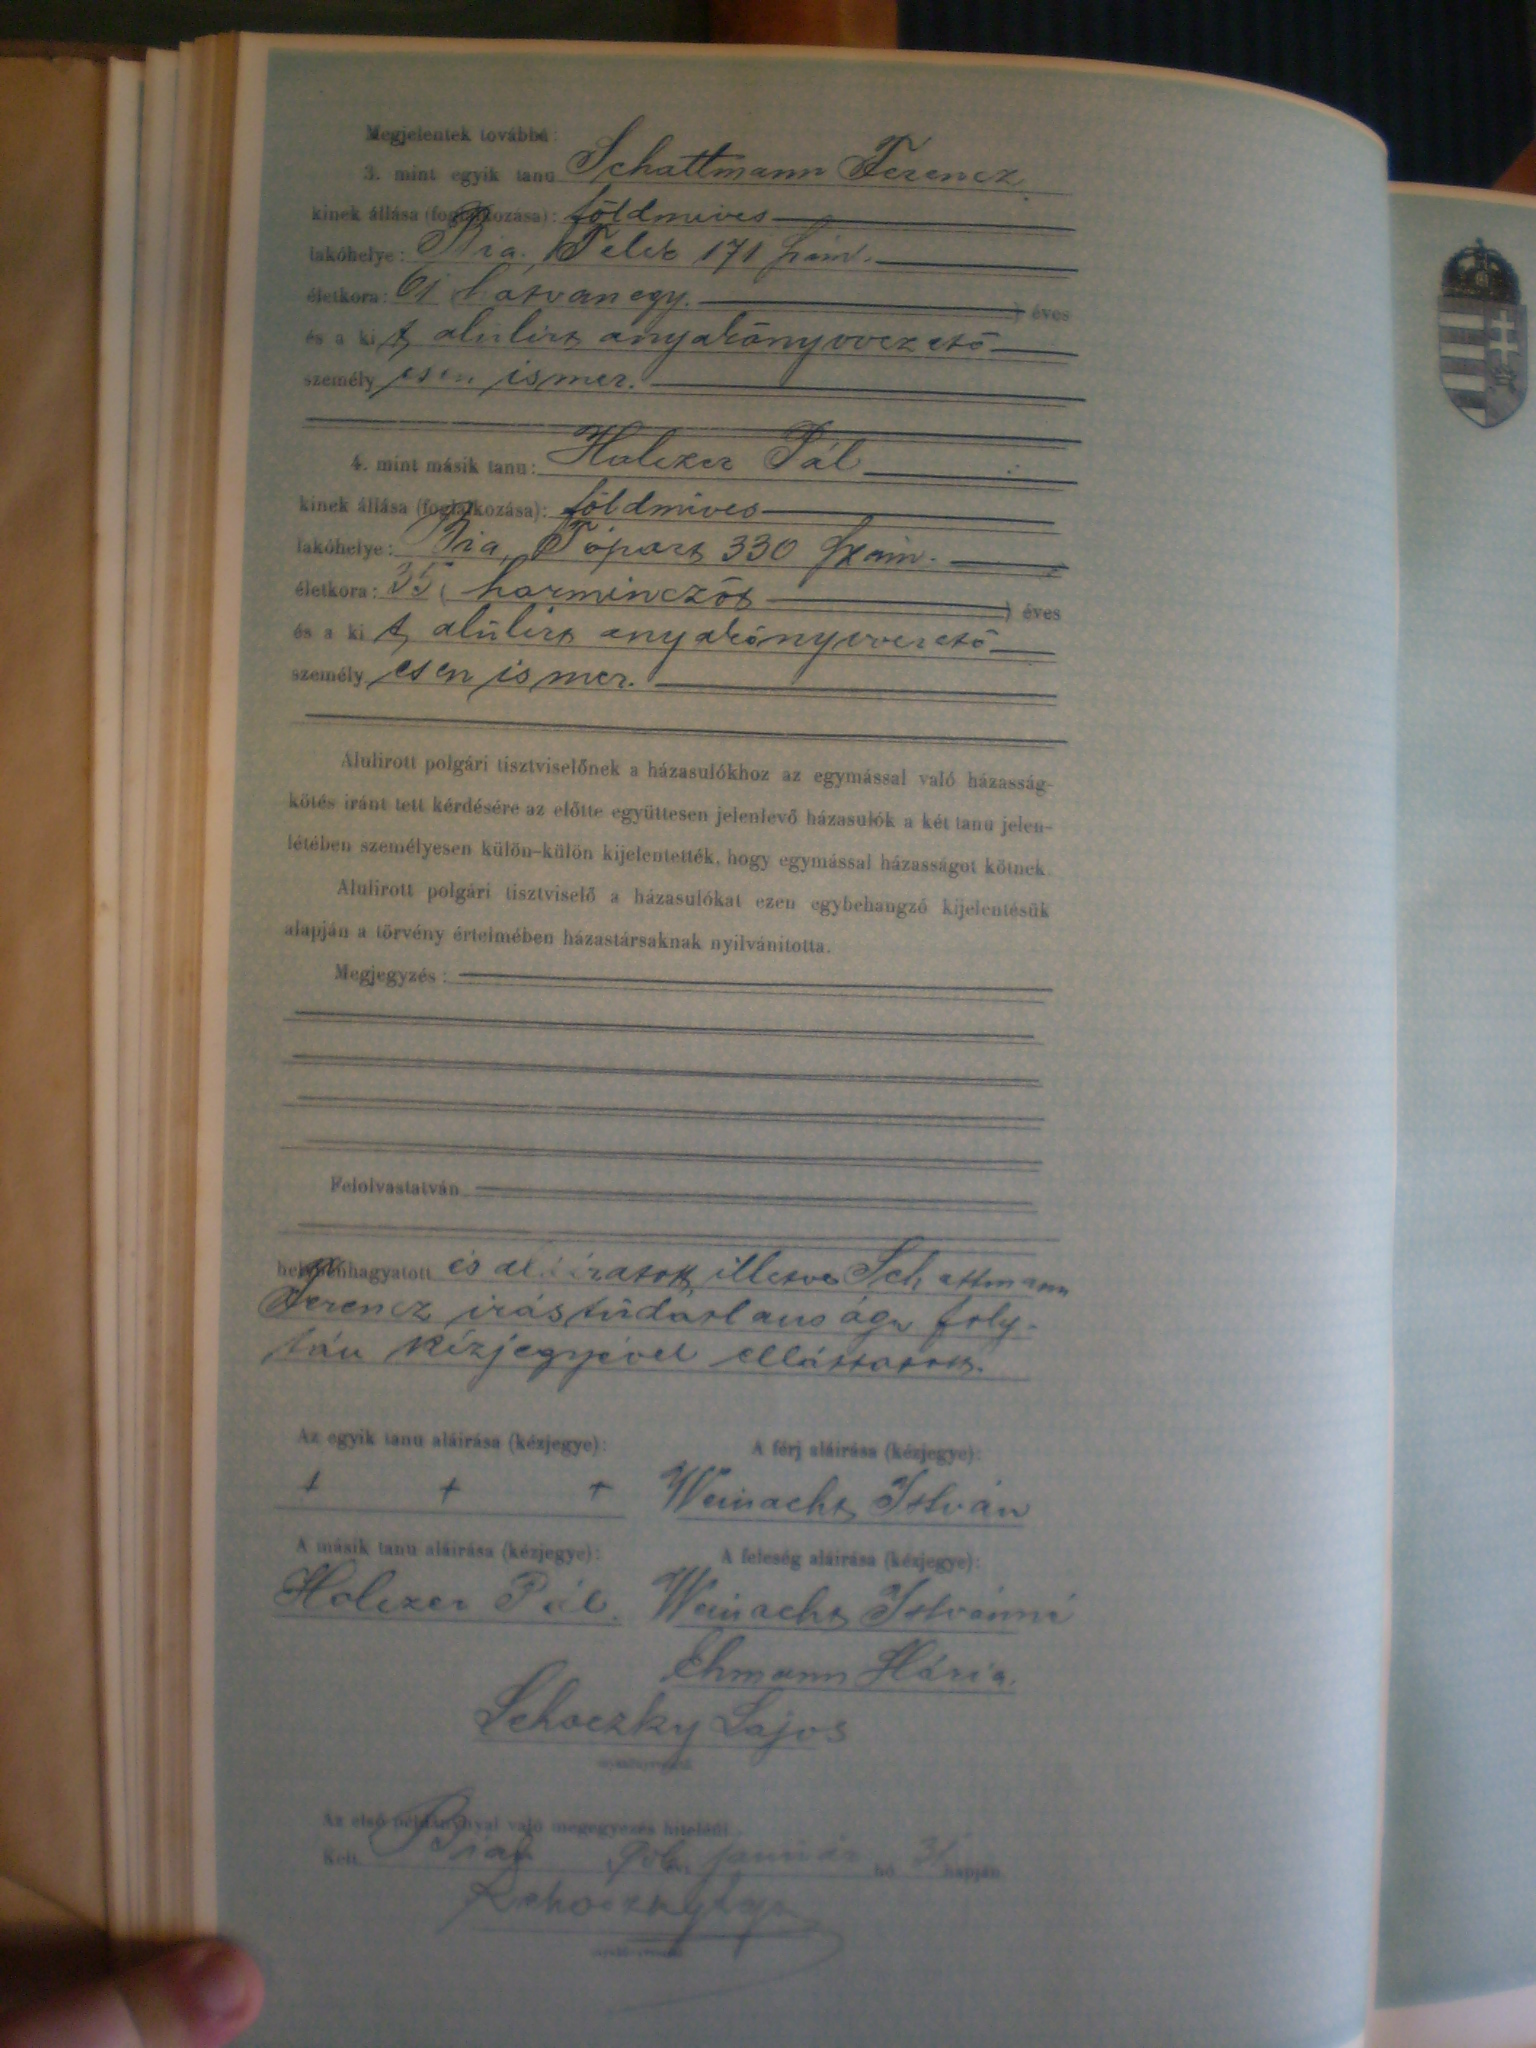 Megjelentek továbbá:
3. mint egyik tanu Schattmann Ferencz
kinek állása (foglalkozása): földmíves
lakóhelye: Bia, Telek 171 szám.
életkora: 61 (hatvanegy.) éves
és a ki t, alulirt anyakönyvvezető
személy esen ismer.
4. mint másik tanu: Holczer Pál
kinek állása (foglalkozása): földmíves
lakóhelye: Bia, Tópart 330 szám.
életkora: 35 (harminczöt) éves
és a ki t, alulirt anyakönyvvezető
személy esen ismer.
Alulirott polgári tisztviselőnek a házasulókhoz az egymással való házasság-
kötés iránt tett kérdésére az előtte együttesen jelenlevő házasulók a két tanu jelen-
létében személyesen külön-külön kijelentették, hogy egymással házasságot kötnek.
Alulirott polgári tisztviselő a házasulókat ezen egybehangzó kijelentésük
alapján a törvény értelmében házastársaknak nyilvánitotta.
Megjegyzés:
Felolvastatván
helybenhagyatott és aláiratott, illetve Schattmann
Ferencz irástudatlansága foly-
tán kézjegyével elláttatott.
Az egyik tanu aláirása (kézjegye): A férj aláirása (kézjegye):
+ + + Weinacht István
A másik tanu aláirása (kézjegye): A feleség aláirása (kézjegye):
Holczer Pál. Weinacht Istvánné
Ehmann Mária.
Schoczky Lajos
anyakönyvvezető
Az első példánnyal való megegyezés hiteléül.
Kelt Bia, január hó 31 napján
anyakönyvvezető